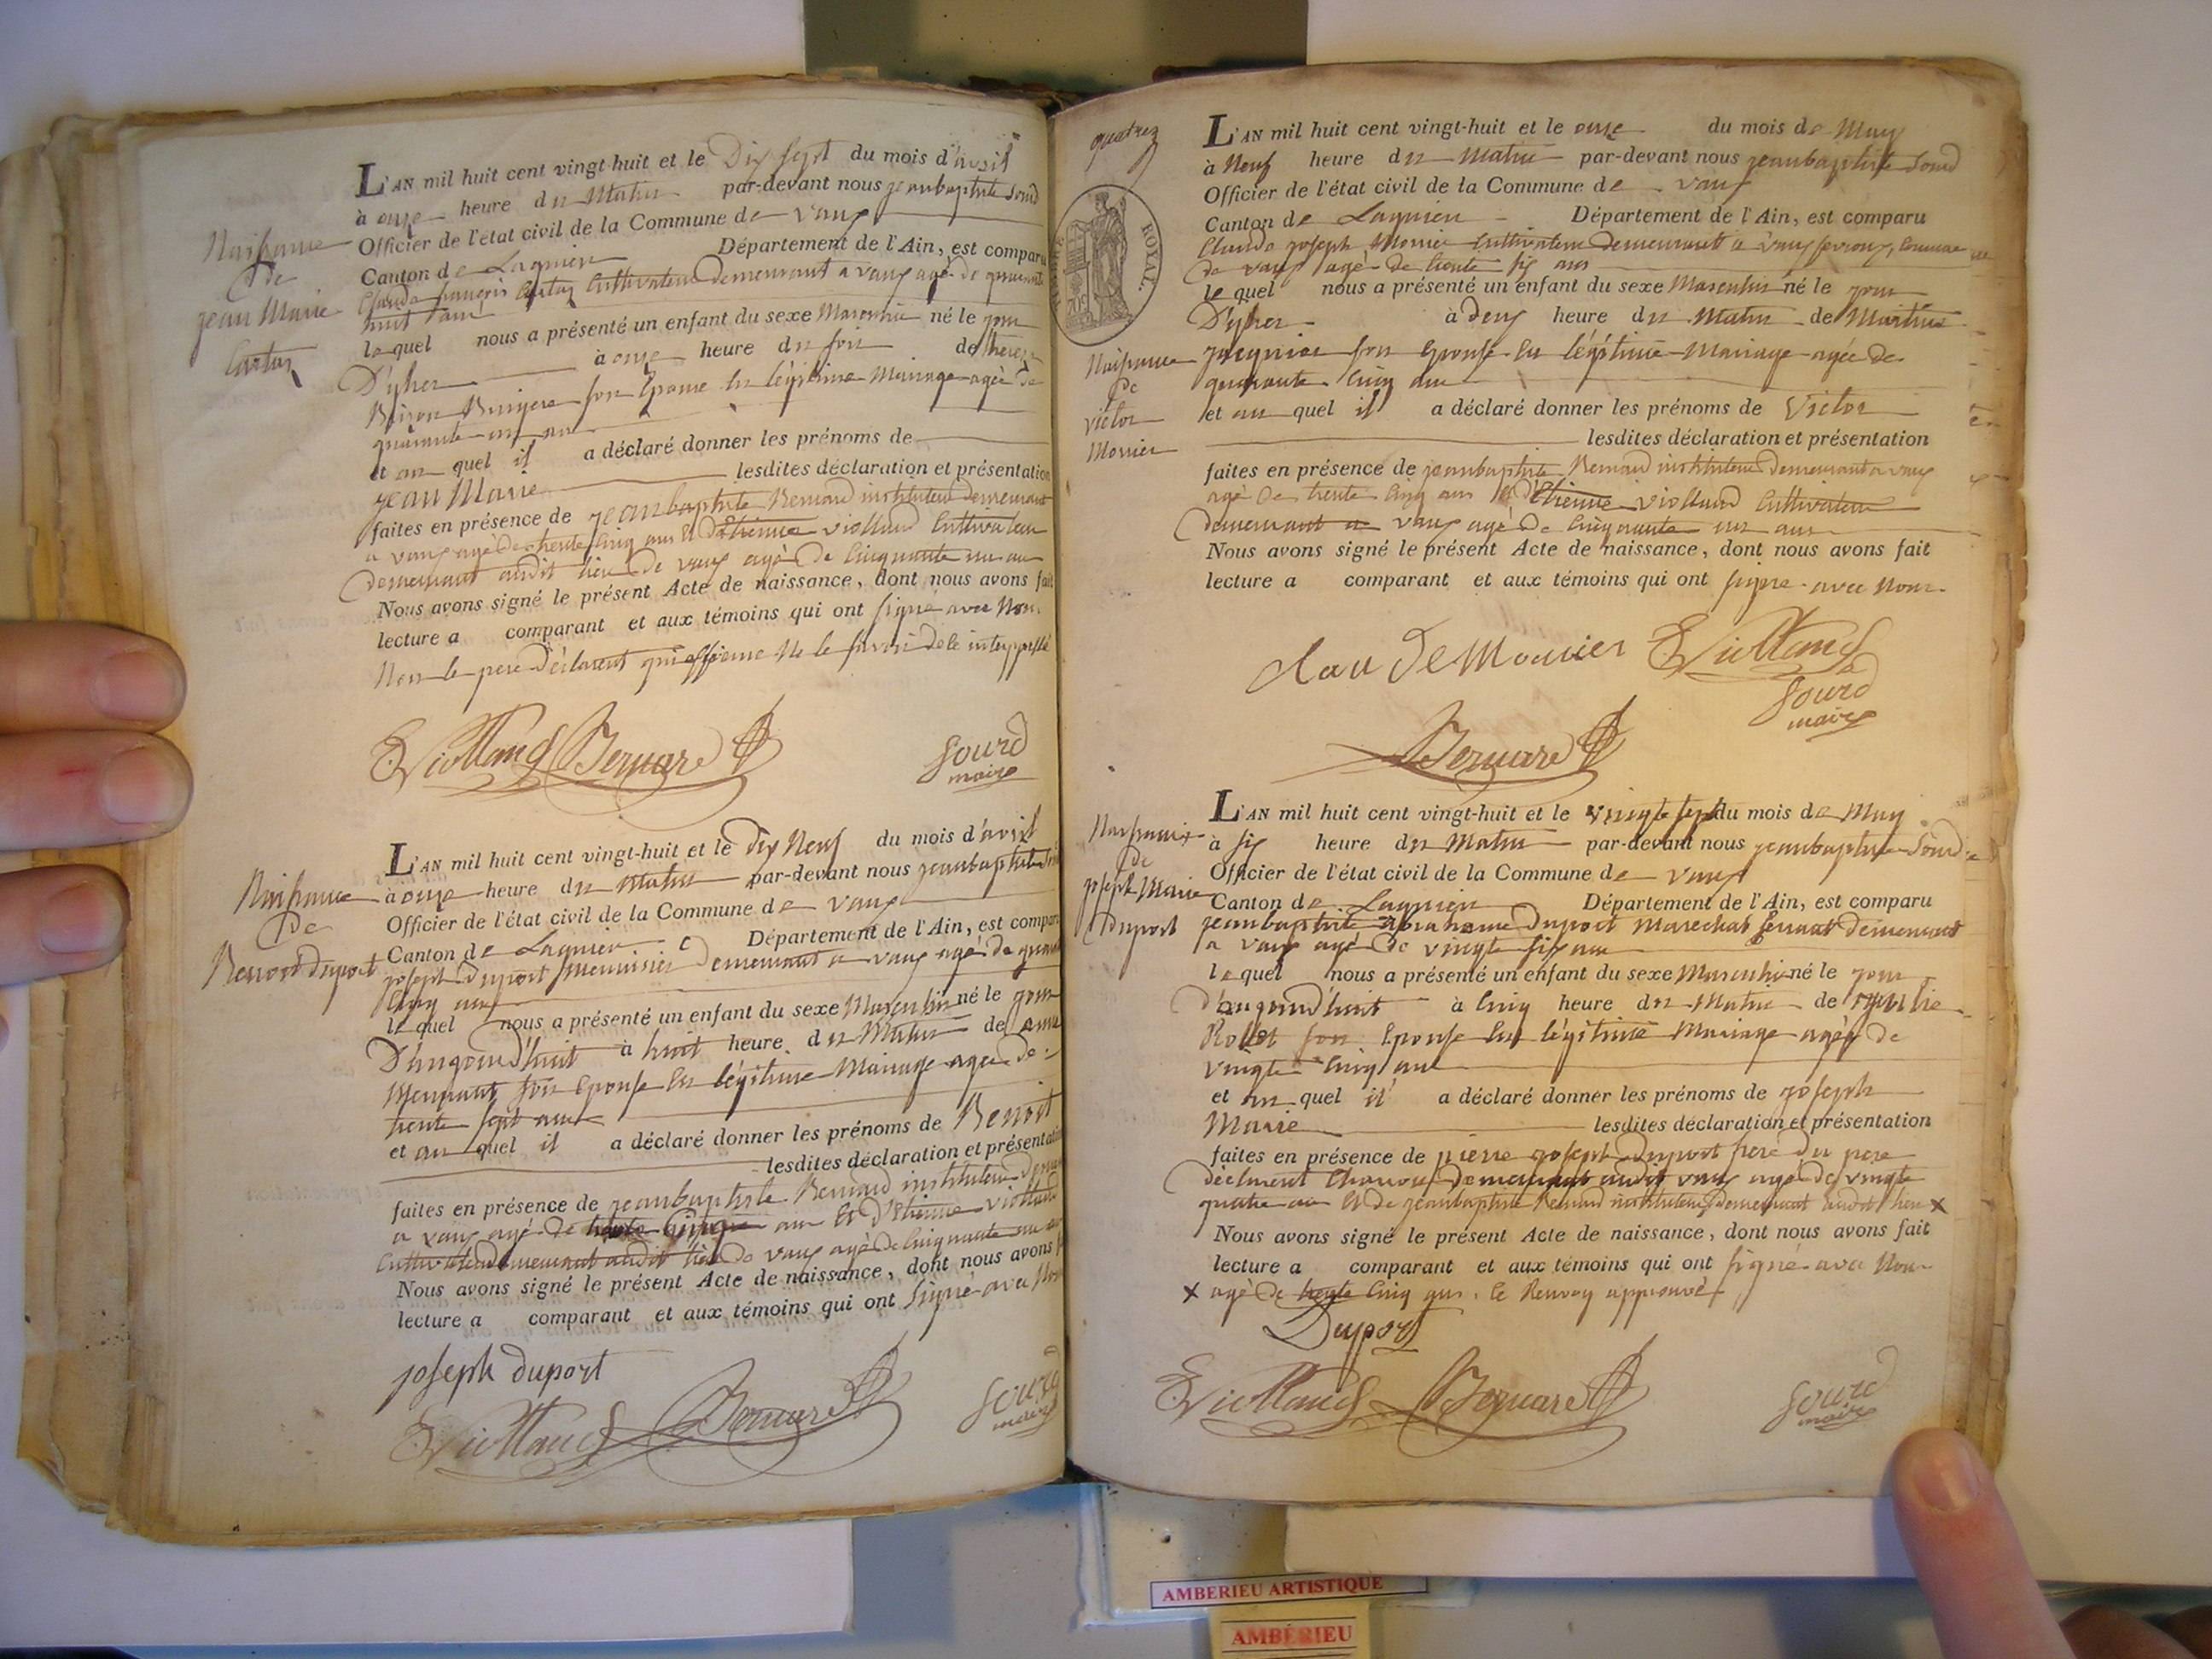 Naissance
de
jean Marie
Cartaz
L'AN mil huit cent vingt-huit et le Dix sept du mois d'avril
à onze heure du Matin par-devant nous jeanbaptiste Sourd
Officier de l'état civil de la Commune de vaux
Canton de Lagnieu Département de l'Ain, est comparu
Claude françois Cartaz Cultivateur demeurant a vaux agé de quarante
huit ans
lequel nous a présenté un enfant du sexe Masculin né le jour
D'yher à onze heure du soir de
son Epouse En légitime Mariage agée de
quarante un an
et au quel il a déclaré donner les prénoms de
jean Marie lesdites déclaration et présentation
faites en présence de jeanbaptiste Bernard instituteur demeurant
a vaux agé de trente Cinq ans et d'Etienne violland Cultivateur
demeurant audit lieu de vaux agé de Cinquante un an
Nous avons signé le présent Acte de naissance, dont nous avons fait
lecture a comparant et aux témoins qui ont signé avec Nous
Non le pere déclarent
EViolland Bernard
Sourd
maire
Naissance
de
Benoit duport
L'AN mil huit cent vingt-huit et le dix Neuf du mois d'avril
à onze heure du Matin par-devant nous jeanbaptiste
Officier de l'état civil de la Commune de vaux
Canton de Lagnieu Département de l'Ain, est comparu
joseph Duport Menuisier Demeurant a vaux agé de
Cinq ans
lequel nous a présenté un enfant du sexe Masculin né le jour
D'aujourd'huit à huit heure du Matin de
son Epouse En légitime Mariage agée de
trente sept ans
et au quel il a déclaré donner les prénoms de Benoit
lesdites déclaration et présentation
faites en présence de jeanbaptiste Bernard instituteur
a vaux agé de trente Cinq ans Et D'Etienne violland
Cultivateur demeurant audit lieu de vaux agé de Cinquante un
Nous avons signé le présent Acte de naissance, dont nous avons
lecture a comparant et aux témoins qui ont signé avec Nous
joseph duport
EViolland Bernard
Sourd
maire
quatrez
ROYAL.
Naissance
de
victor
Monier
L'AN mil huit cent vingt-huit et le onze du mois de May
à Neuf heure du Matin par-devant nous jeanbaptiste Sourd
Officier de l'état civil de la Commune de vaux
Canton de Lagnieu Département de l'Ain, est comparu
Claude joseph Monier Cultivateur demeurant a vaux fevroux, Commune
de vaux agé de trente six ans
lequel nous a présenté un enfant du sexe Masculin né le jour
D'yher à deux heure du Matin de Martine
son Epouse En légitime Mariage agée de
quarante Cinq ans
et au quel il a déclaré donner les prénoms de Victor
lesdites déclaration et présentation
faites en présence de jeanbaptiste Bernard instituteur Demeurant a vaux
agé de trente Cinq ans Et d'Etienne violland Cultivateur
demeurant a vaux agé de Cinquante un ans
Nous avons signé le présent Acte de naissance, dont nous avons fait
lecture a comparant et aux témoins qui ont signé avec Nous
clau de Monier EViolland
Sourd
maire
Bernard
Naissance
de
joseph Marie
Duport
L'AN mil huit cent vingt-huit et le vingte sept du mois de May
à six heure du Matin par-devant nous jeanbaptiste Sourd
Officier de l'état civil de la Commune de vaux
Canton de Lagnieu Département de l'Ain, est comparu
jeanbaptiste abrahame Duport Marechal ferrant demeurant
a vaux agé de vingte six ans
lequel nous a présenté un enfant du sexe Masculin né le jour
d'aujourd'huit à Cinq heure du Matin de
son Epouse En légitime Mariage agée de
vingte Cinq ans
et au quel il a déclaré donner les prénoms de joseph
Marie lesdites déclaration et présentation
faites en présence de pierre joseph Duport frere du pere
déclarent Charron Demeurant audit vaux agé de vingte
quatre ans Et de jeanbaptiste Bernard instituteur demeurant audit lieu x
Nous avons signé le présent Acte de naissance, dont nous avons fait
lecture a comparant et aux témoins qui ont signé avec Nous
x agé de trente Cinq ans, le Renvoy approuvé
Duport
EViolland Bernard
Sourd
maire
AMBERIEU ARTISTIQUE
AMBÉRIEU